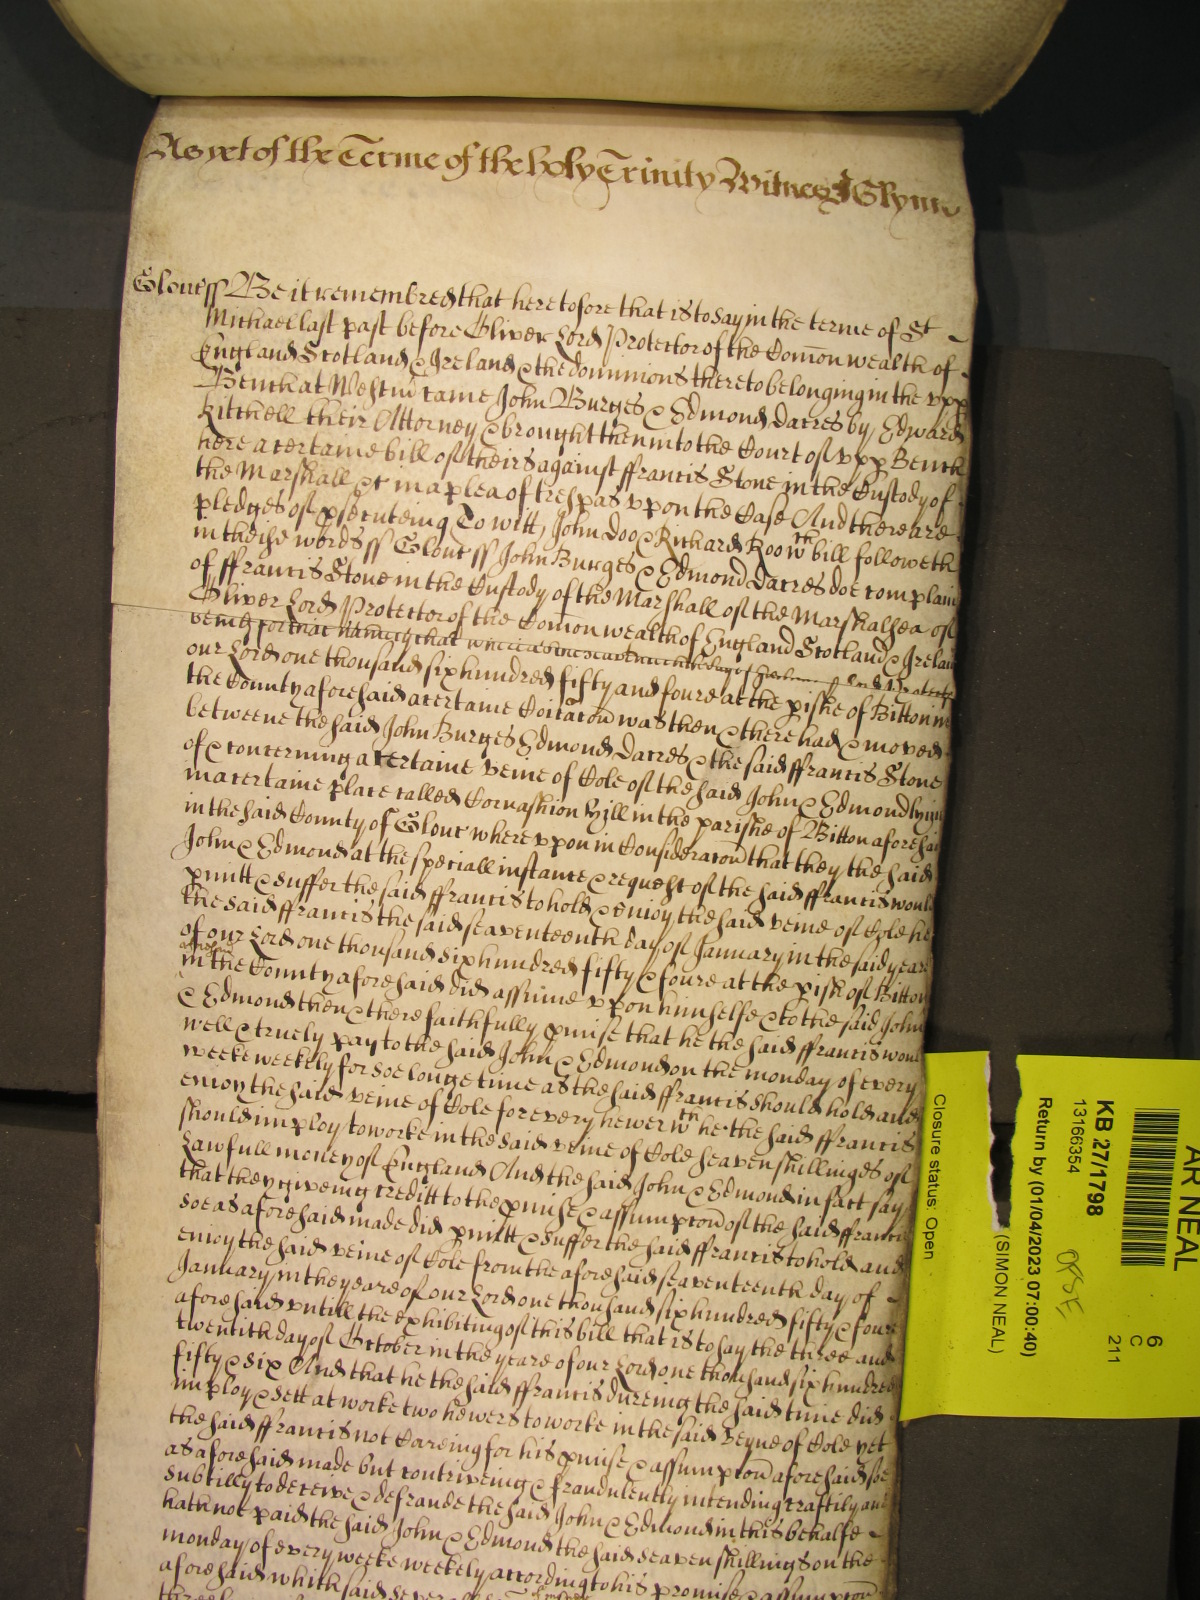 As yet of the Terme of the holy Trinity Witnes J Glynn
Gloucr ss Be it remembred that heretofore that is to say in the terme of St
Michael last past before Oliver Lord Protector of the Comon wealth of
England Scotland & Ireland & the dominions thereto belonging in the upp
Bench at Westmr came John Burges & Edmond Dacres by Edward
Kitchell their Attorney & brought then into the Court of upp Bench
here a certaine bill of theirs against ffrancis Stone in the Custody of
the Marshall &c in a plea of trespas upon the Case And there are
pledges of psecuteing To witt, John Doo & Richard Roo wch bill followeth
in theise words ss Gloucr ss John Burges & Edmond Dacres doe complain
of ffrancis Stone in the Custody of the Marshall of the Marshalsea of
Oliver Lord Protector of the Comon wealth of England Scotland & Irelan
being for that namely that
our Lord one thousand six hundred fifty and foure at the pishe of Bitton in
the County aforesaid a certaine Coicacon was then & there had & moved
betweene the said John Burges Edmond Dacres & the said ffrancis Stone
of & concerning a certaine veine of Cole of the said John & Edmond lying
in a certaine place called Cornashion Hill in the parishe of Bitton aforesai
in the said County of Glouc where upon in Consideracon that they the said
John & Edmond at the speciall instance & request of the said ffrancis would
pmitt & suffer the said ffrancis to hold & enjoy the said veine of Cole he
the said ffrancis the said seaventeenth day of January in the said yeare
of our Lord one thousand six hundred fifty & foure at the pish of Bitton
aforesaid
in the County aforesaid did assume upon himselfe & to the said John
& Edmond then & there faithfully pmise that he the said ffrancis woul
well & truely pay to the said John & Edmond on the monday of every
weeke weekely for soe longe time as the said ffrancis should hold and
enjoy the said veine of Cole for every hewer wch he the said ffrancis
should imploy to worke in the said veine of Cole seaven shillinges of
Lawfull money of England And the said John & Edmond in fact say
that they giveing creditt to the pmise & assumpcon of the said ffranci
soe as aforesaid made did pmitt & suffer the said ffrancis to hold and
enjoy the said veine of Cole from the aforesaid seaventeenth day of
January in the yeare of our Lord one thousand six hundred fifty & foure
aforesaid untill the exhibiting of this bill that is to say the three and
twentith day of October in the yeare of our Lord one thousand six hundred
fifty & six And that he the said ffrancis dureing the said time did
imploy & sett at worke two hewers to worke in the said veyne of Cole yet
the said ffrancis not Careing for his pmise & assumpcon aforesaid soe
as aforesaid made but contriveing & fraudulently intending craftily and
subtilly to deceive & defraude the said John & Edmond in this behalfe
hath not paid the said John & Edmond the said seaven shillings on the
monday of every weeke weekely according to his promise & assumpcon
aforesaid which said
AR NEAL
KB 27/1798
13166354
Return by (01/04/2023 07:00:40)
(SIMON NEAL)
Closure status: Open
6
C
211